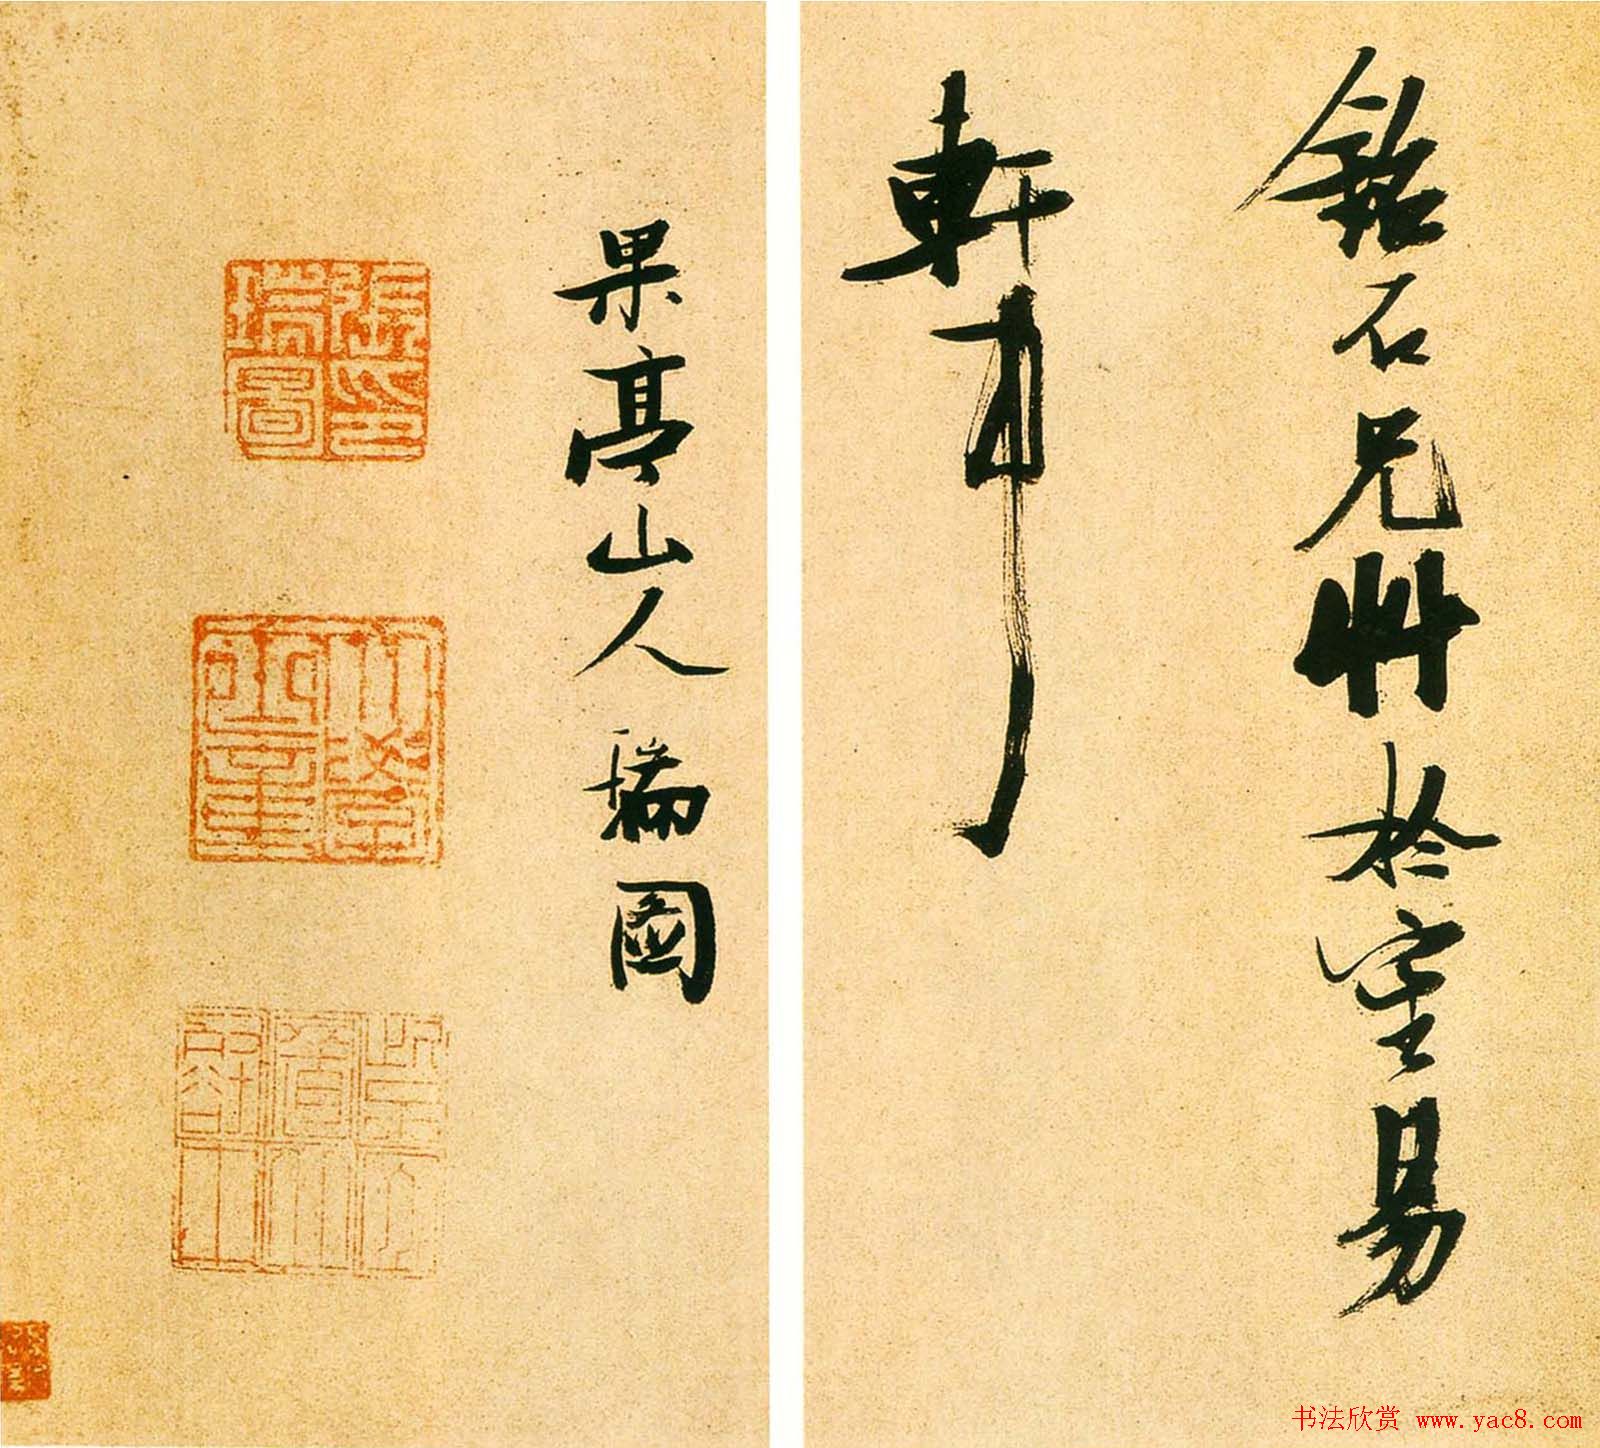 銘石兄艸於室易
軒中
果亭山人瑞圖
張印瑞圖
书法欣赏 www.yac8.com